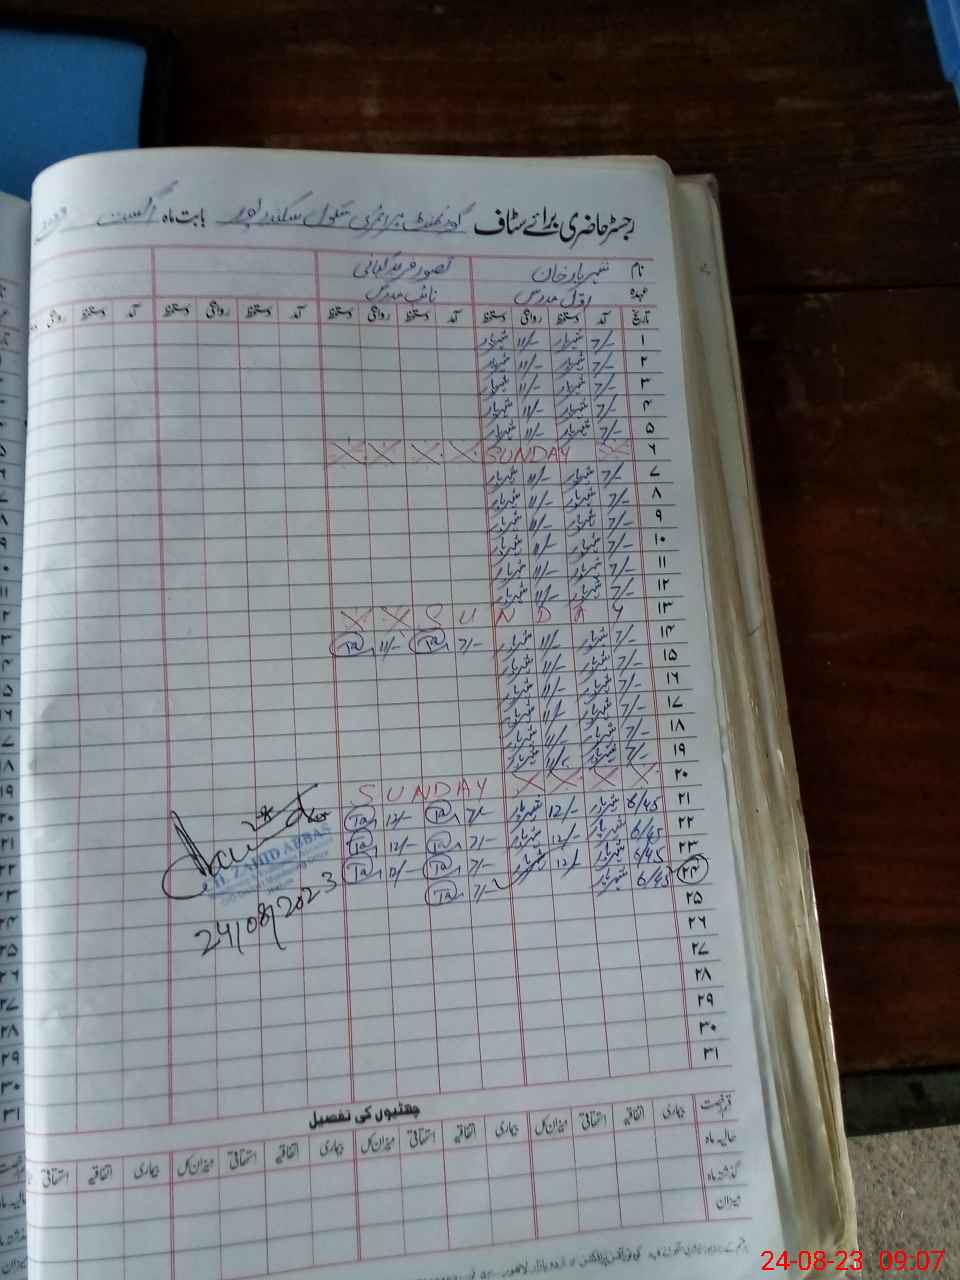 رجسٹر حاضری برائے سٹاف گورنمنٹ پرائمری سکول سکندر پور بابت ماہ اگست
نام شہریار خان تصور فرید
عہدہ مدرس نائب مدرس
تاریخ آمد دستخط روانگی دستخط آمد دستخط روانگی دستخط آمد دستخط روانگی دستخط آمد دستخط روانگی
۱ 7/- شہریار 11/- شہریار
۲ 7/- شہریار 11/- شہریار
۳ 7/- شہریار 11/- شہریار
۴ 7/- شہریار 11/- شہریار
۵ 7/- شہریار 11/- شہریار
۶ SUNDAY
۷ 7/- شہریار 11/- شہریار
۸ 7/- شہریار 11/- شہریار
۹ 7/- شہریار 11/- شہریار
۱۰ 7/- شہریار 11/- شہریار
۱۱ 7/- شہریار 11/- شہریار
۱۲ 7/- شہریار 11/- شہریار
۱۳ SUNDAY
۱۴ 7/- شہریار 11/- شہریار 7/- Ta 11/- Ta
۱۵ 7/- شہریار 11/- شہریار
۱۶ 7/- شہریار 11/- شہریار
۱۷ 7/- شہریار 11/- شہریار
۱۸ 7/- شہریار 11/- شہریار
۱۹ 7/- شہریار 11/- شہریار
۲۰ SUNDAY
۲۱ 6/45 شہریار 12/- شہریار 7/- Ta 12/- Ta
۲۲ 6/45 شہریار 12/- شہریار 7/- Ta 12/- Ta
۲۳ 6/45 شہریار 12/- شہریار 7/- Ta Ta
۲۴ 6/45 شہریار 7/- Ta
ZAHID ABBAS
24/08/2023
۲۵
۲۶
۲۷
۲۸
۲۹
۳۰
۳۱
چھٹیوں کی تفصیل
قسم رخصت بیماری اتفاقیہ استحقاقی میزان کل بیماری اتفاقیہ استحقاقی میزان کل بیماری اتفاقیہ استحقاقی میزان کل بیماری اتفاقیہ استحقاقی
حالیہ ماہ
گذشتہ ماہ
میزان
24-08-23 09:07